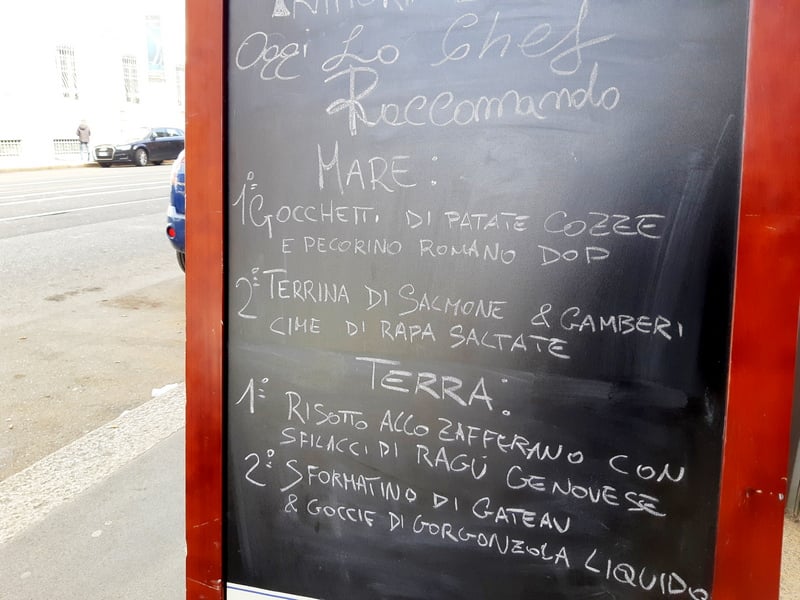 Oggi Lo Chef
Raccomanda
MARE:
1° GOCCHETTI DI PATATE COZZE
E PECORINO ROMANO DOP
2° TERRINA DI SALMONE & GAMBERI
CIME DI RAPA SALTATE
TERRA:
1° RISOTTO ALLO ZAFFERANO CON
SFILACCI DI RAGÚ GENOVESE
2° SFORMATINO DI GATEAU
& GOCCIE DI GORGONZOLA LIQUIDO